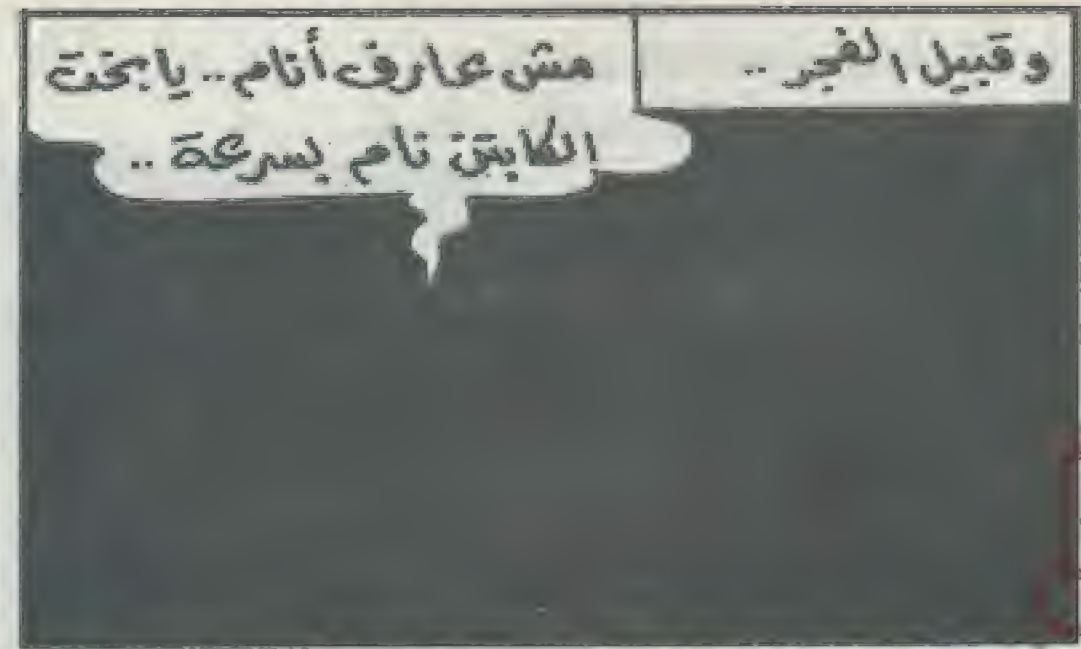 وقبيل الفجر ..
مش عارف أنام .. يا بخت
الكابتن نام بسرعة ..